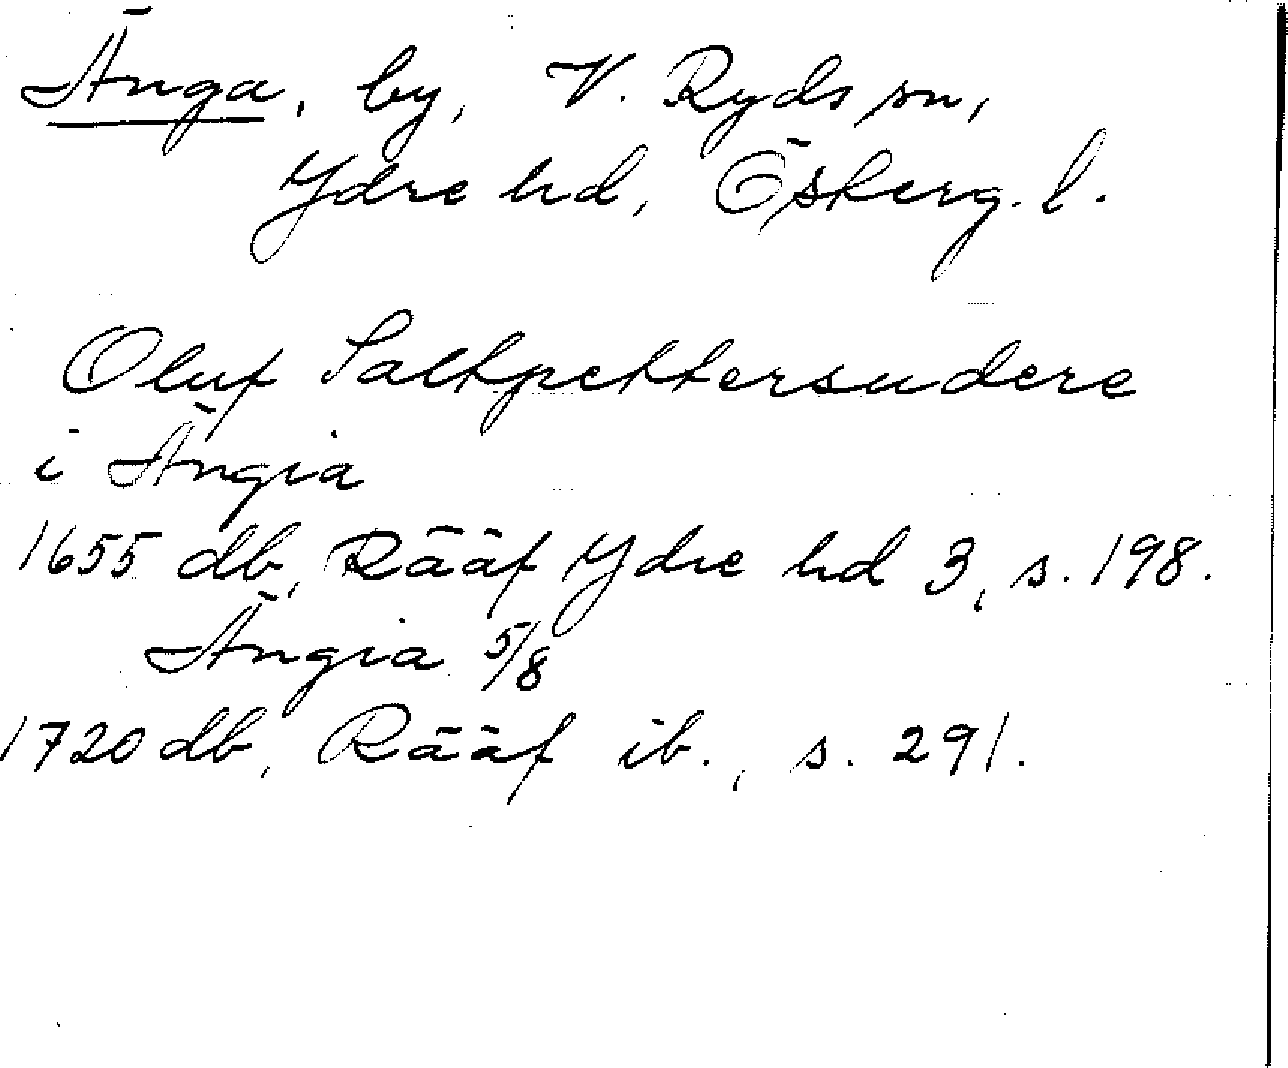 Änga, by, V. Ryds sn,
Ydre hd, Österg. l.
Oluf Saltpettersudere
i Ängia
1655 db, Rääf Ydre hd 3, s. 198.
Ängia 5/8
1720 db, Rääf ib., s. 291.